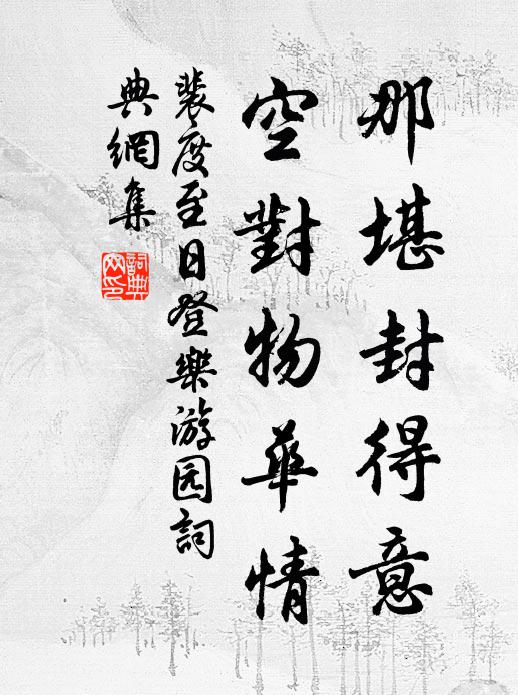 那堪封得意
空對物華情
裴度至日登樂游园詞
典網集
詞典網印